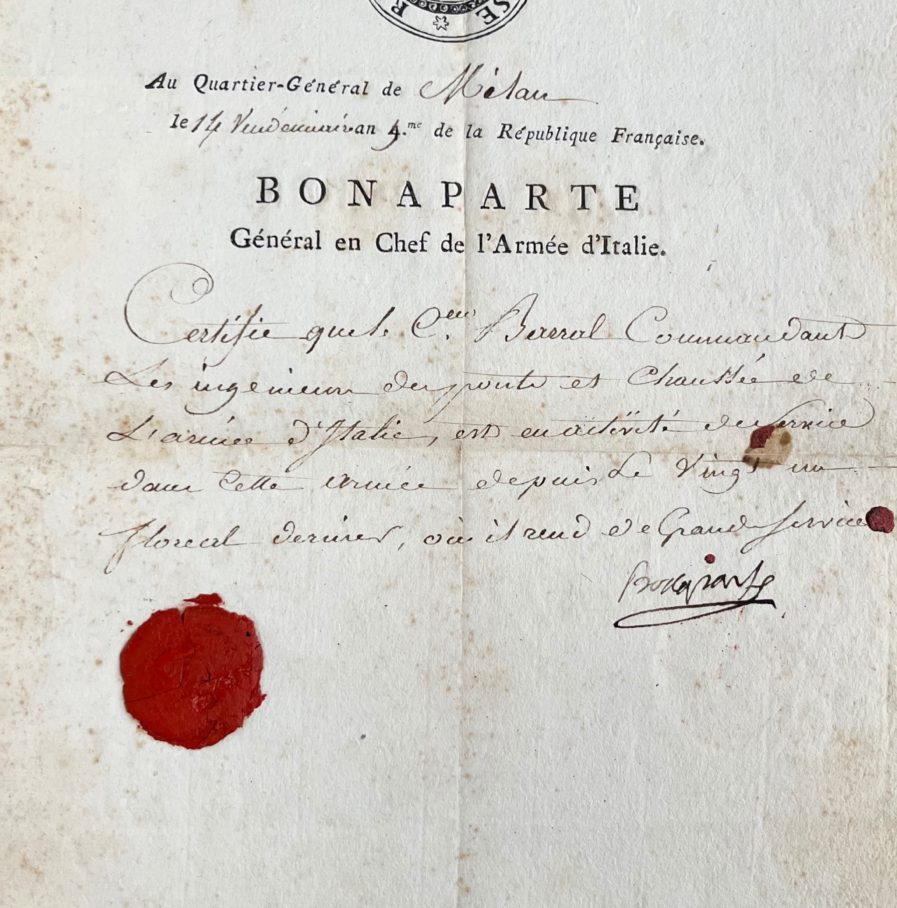 R * SE
Au Quartier-Général de Milan
le 14 Vendémiaire an 5.me de la République Française.
BONAPARTE
Général en Chef de l'Armée d'Italie.
Certifie que le C.en Barral Commandant
Les ingenieurs des ponts et Chaussée de
L'armée d'Italie, est en activité de Service
dans Cette armée depuis Le Vingt un
floreal dernier, où il rend de Grand Service
Bonaparte